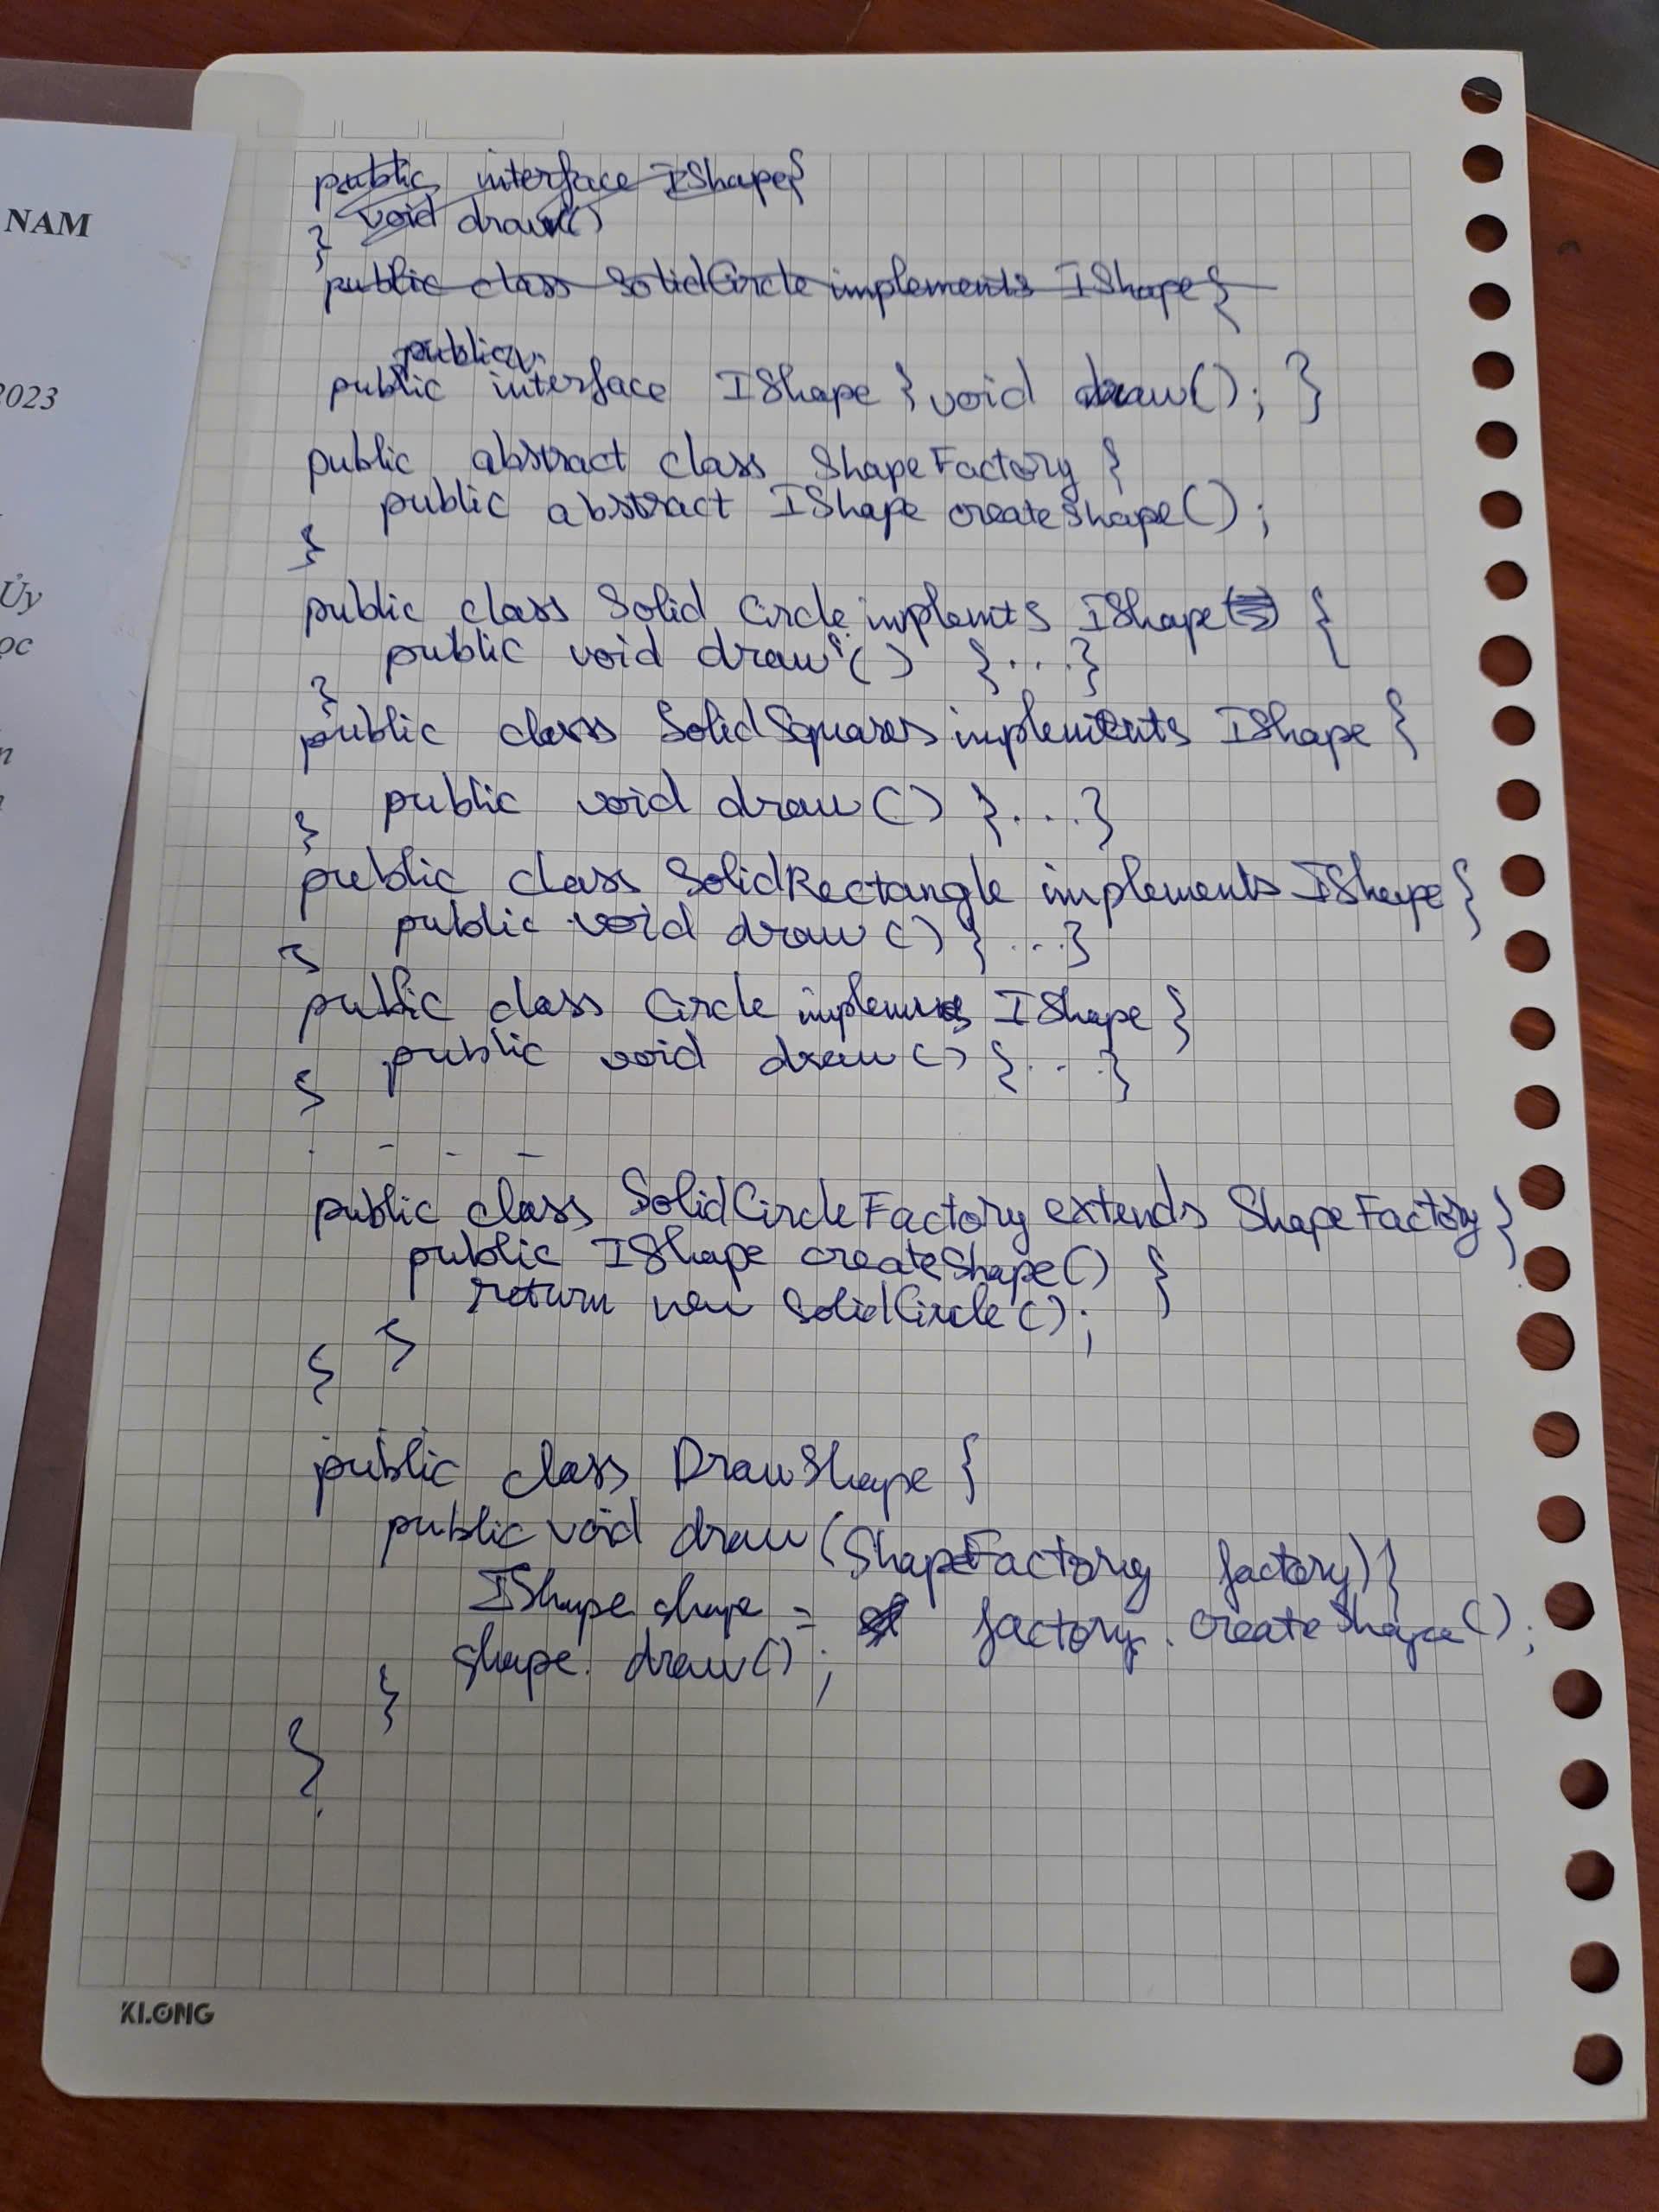 NAM
2023
Ủy
ọc
n
public interface IShape{
void draw()
}
public class SolidCircle implements IShape {
public
public interface IShape { void draw(); }
public abstract class ShapeFactory {
public abstract IShape createShape();
}
public class Solid Circle implemts IShape {
public void draw() {...}
}
public class SolidSquares implements IShape {
public void draw() {...}
}
public class SolidRectangle implements IShape {
public void draw() {...}
}
public class Circle implements IShape {
public void draw() {...}
}
. - - -
public class SolidCircleFactory extends ShapeFactory {
public IShape createShape() {
return new SolidCircle();
}
}
public class DrawShape {
public void draw (ShapeFactory factory) {
IShape shape = factory.createShape();
shape.draw();
}
}
KLONG